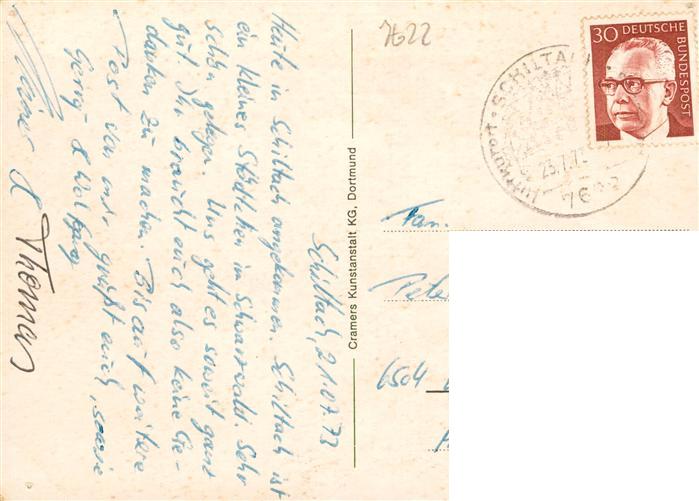 7622
30 DEUTSCHE
BUNDESPOST
SCHILTACH
Luftkurort
23.7.73
762
Schiltach, 21.07.73
Heute in Schiltach angekommen. Schiltach ist
ein kleines Städtchen im Schwarzwald. Sehr
schön gelegen. Uns geht es soweit ganz
gut. Ihr braucht euch also keine Ge-
danken zu machen. Bis auf weitere
Post von mir grüßt euch, sowie
Georg & Wolfgang
&
Thomas
Cramers Kunstanstalt KG, Dortmund
Fam.
Pete
6504